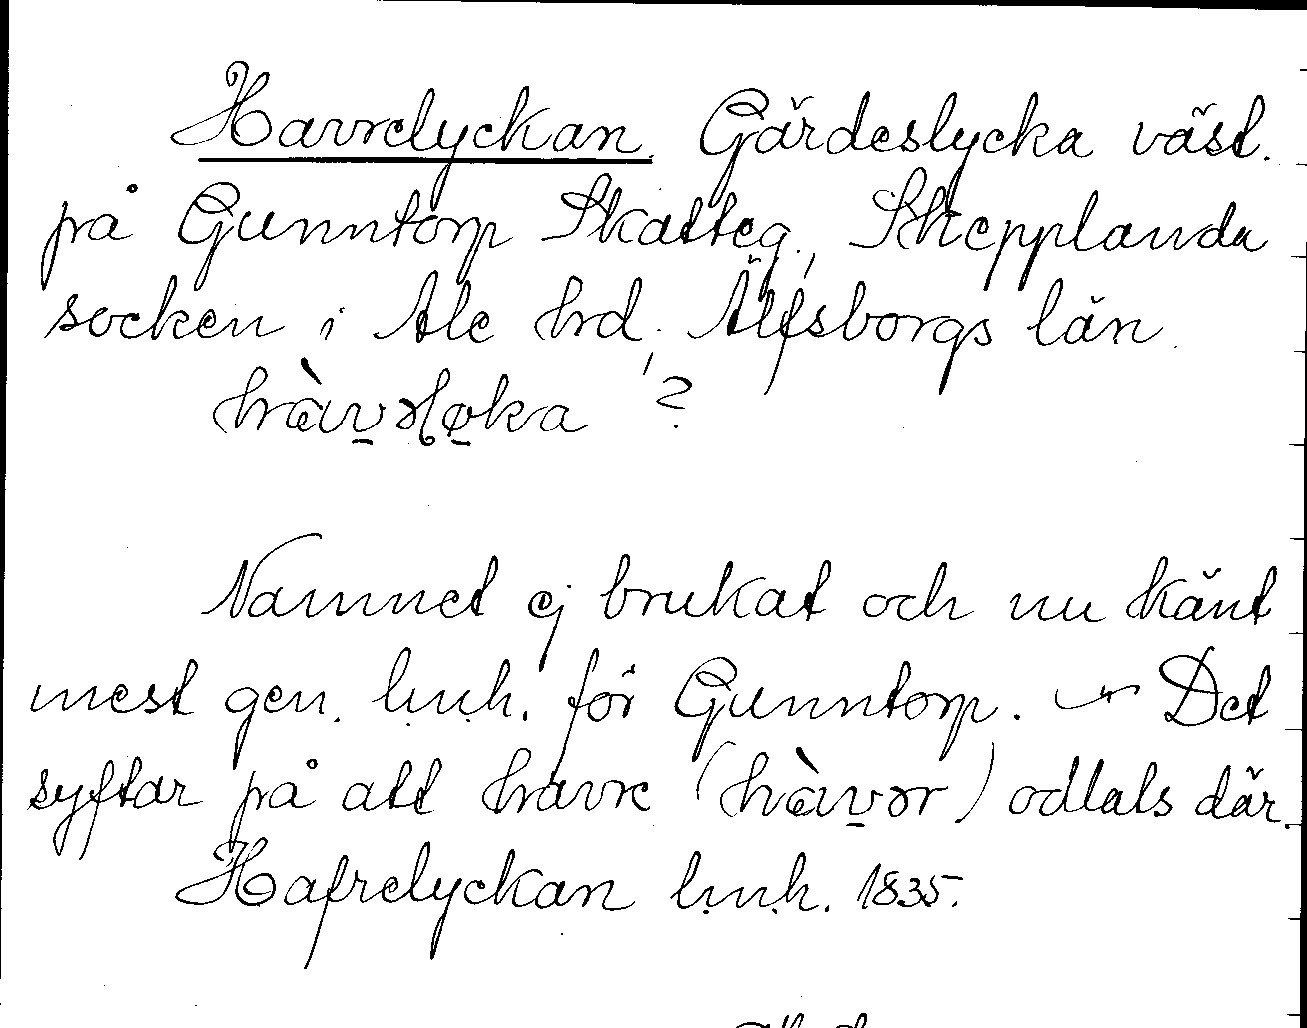 Havrelyckan Gärdeslycka väst.
på Gunntorp Skatteg., Skepplanda
socken i Ale hrd, Älfsborgs län.
hàvəl̥øka ?
Namnet ej brukat och nu känt
mest gen. l.m.h. för Gunntorp. — Det
syftar på att havre (hàvər) odlats där.
Hafrelyckan l.m.h. 1835.